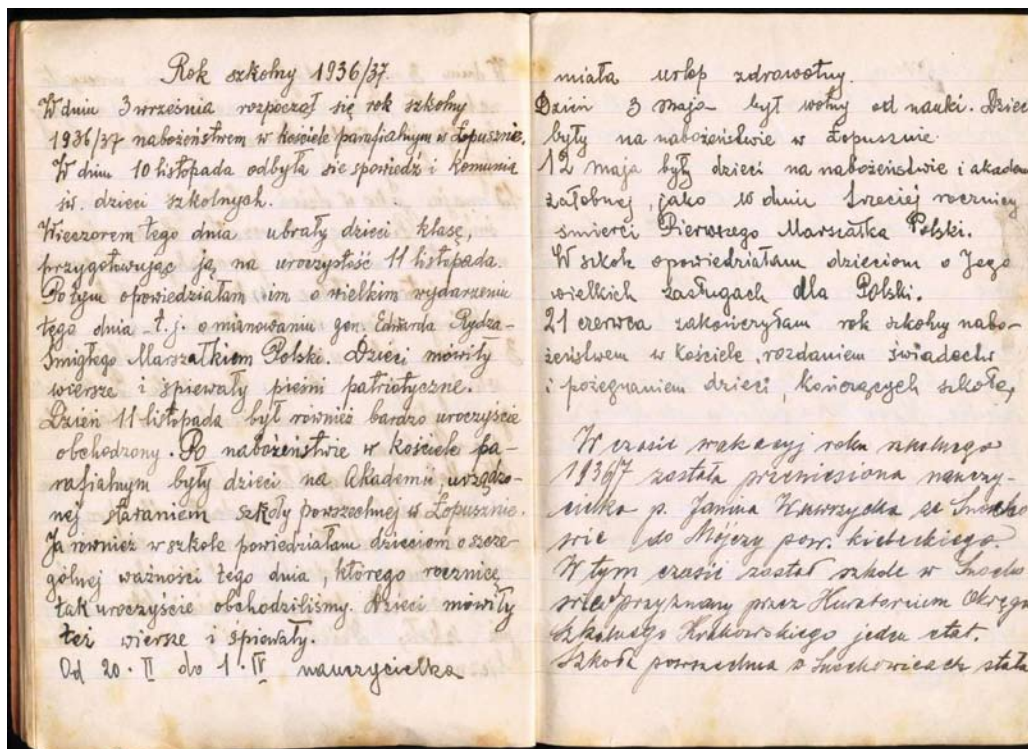 Rok szkolny 1936/37.
W dniu 3 września rozpoczął się rok szkolny
1936/37 nabożeństwem w kościele parafialnym w Łopusznie.
W dniu 10 listopada odbyła się spowiedź i komunia
św. dzieci szkolnych.
Wieczorem tego dnia ubrały dzieci klasę,
przygotowując ją na uroczystość 11 listopada.
Po tym opowiedziałam im o wielkim wydarzeniu
tego dnia - t.j. o mianowaniu gen. Edwarda Rydza-
Śmigłego Marszałkiem Polski. Dzieci mówiły
wiersze i śpiewały pieśni patriotyczne.
Dzień 11 listopada był również bardzo uroczyście
obchodzony. Po nabożeństwie w kościele pa-
rafialnym były dzieci na Akademii urządzo-
nej staraniem szkoły powszechnej w Łopusznie.
Ja również w szkole powiedziałam dzieciom o szcze-
gólnej ważności tego dnia, którego rocznicę
tak uroczyście obchodziliśmy. Dzieci mówiły
też wiersze i śpiewały.
Od 20. II do 1. IV nauczycielka
miała urlop zdrowotny.
Dzień 3 maja był wolny od nauki. Dzieci
były na nabożeństwie w Łopusznie.
12 maja były dzieci na nabożeństwie i akadem
żałobnej, jako w dniu trzeciej rocznicy
śmierci Pierwszego Marszałka Polski.
W szkole opowiedziałam dzieciom o Jego
wielkich zasługach dla Polski.
21 czerwca zakończyłam rok szkolny nabo-
żeństwem w kościele, rozdaniem świadectw
i pożegnaniem dzieci, kończących szkołę,
W czasie wakacyj roku szkolnego
1936/7 została przeniesiona nauczy-
cielka p. Janina Wawrzycka ze
do Mójczy pow. kieleckiego.
W tym czasie został szkole w
przyznany przez Kuratorium Okręgu
Szkolnego Krakowskiego jeden etat.
Szkoła powszechna w stała